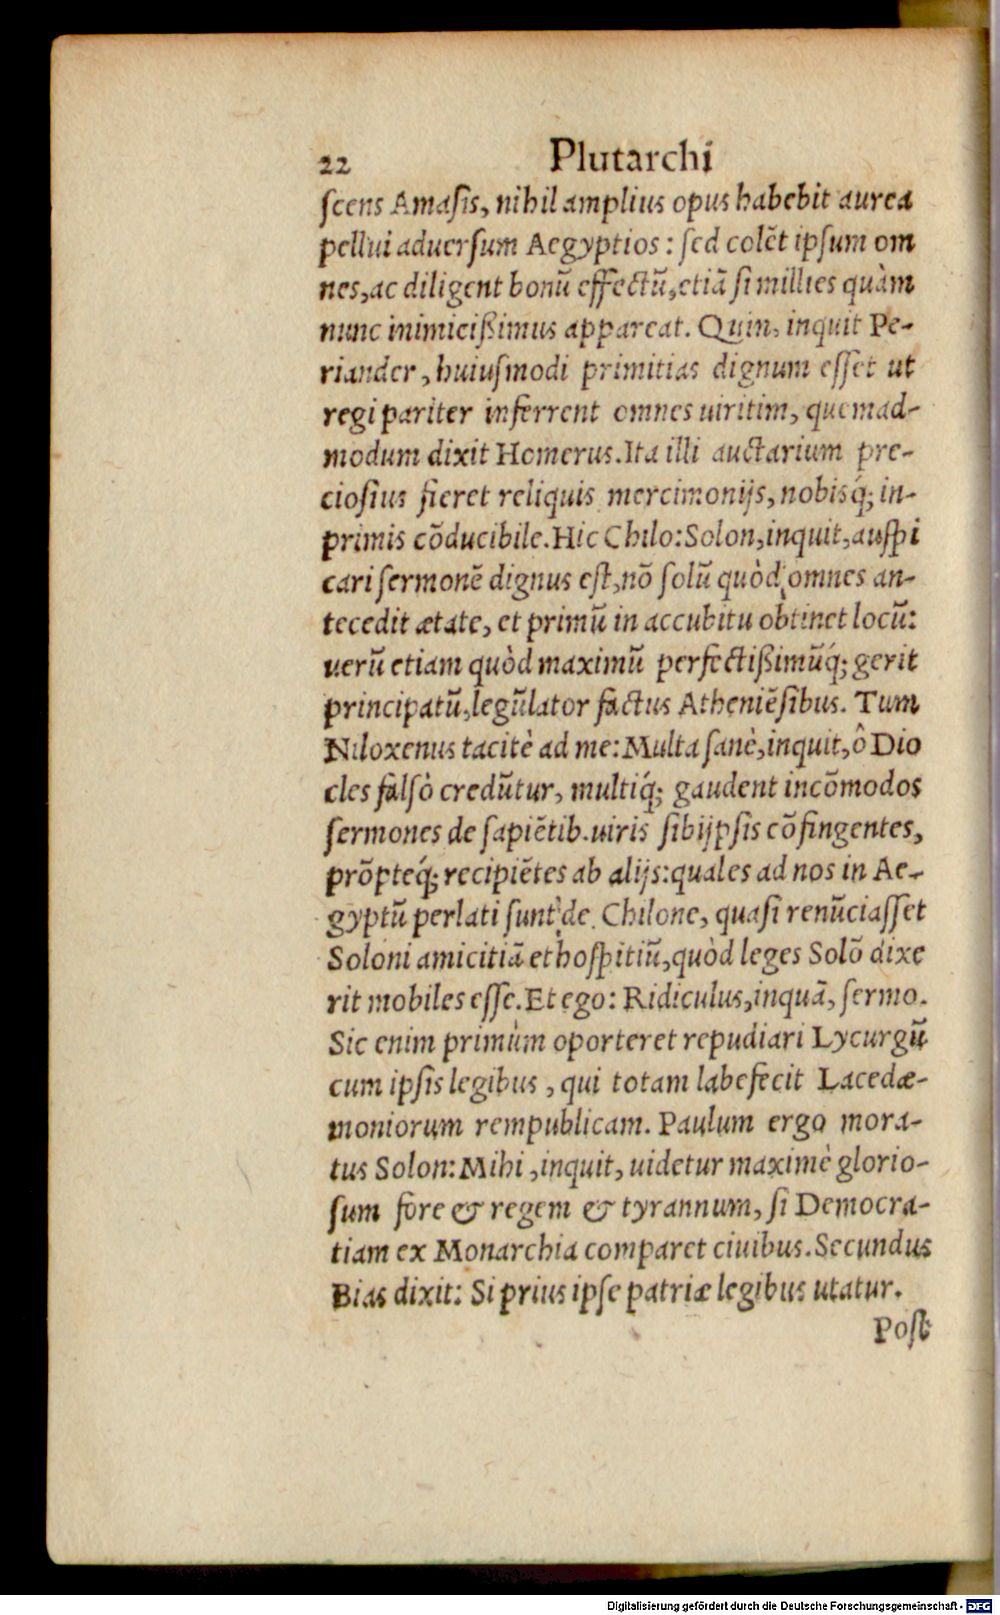 22 Plutarchi
ſcens Amaſis, nihil amplius opus habebit aurea
pellui aduerſum Aegyptios: ſed colēt ipſum om
nes, ac diligent bonū effectū, etiā ſi millies quàm
nunc inimicißimus appareat. Quin, inquit Pe-
riander, huiuſmodi primitias dignum eſſet ut
regi pariter inferrent omnes uiritim, quemad-
modum dixit Homerus. Ita illi auctarium pre-
cioſius fieret reliquis mercimonijs, nobisq́; in-
primis cōducibile. Hic Chilo: Solon, inquit, auſpi
cari ſermonē dignus eſt, nō ſolū quòd omnes an-
tecedit ætate, et primū in accubitu obtinet locū:
uerū etiam quòd maximū perfectißimūq́; gerit
principatū, legūlator factus Atheniēſibus. Tum
Niloxenus tacitè ad me: Multa ſanè, inquit, ô Dio
cles falſò credūtur, multiq́; gaudent incōmodos
ſermones de ſapiētib. uiris ſibijpſis cōfingentes,
prōpteq́; recipiētes ab alijs: quales ad nos in Ae-
gyptū perlati ſunt de Chilone, quaſi renūciaſſet
Soloni amicitiā et hoſpitiū, quòd leges Solō dixe
rit mobiles eſſe. Et ego: Ridiculus, inquā, ſermo.
Sic enim primùm oporteret repudiari Lycurgū
cum ipſis legibus, qui totam labefecit Lacedæ-
moniorum rempublicam. Paulum ergo mora-
tus Solon: Mihi, inquit, uidetur maximè glorio-
ſum fore & regem & tyrannum, ſi Democra-
tiam ex Monarchia comparet ciuibus. Secundus
Bias dixit: Si prius ipſe patriæ legibus utatur.
Poſt
Digitalisierung gefördert durch die Deutsche Forschungsgemeinschaft - DFG